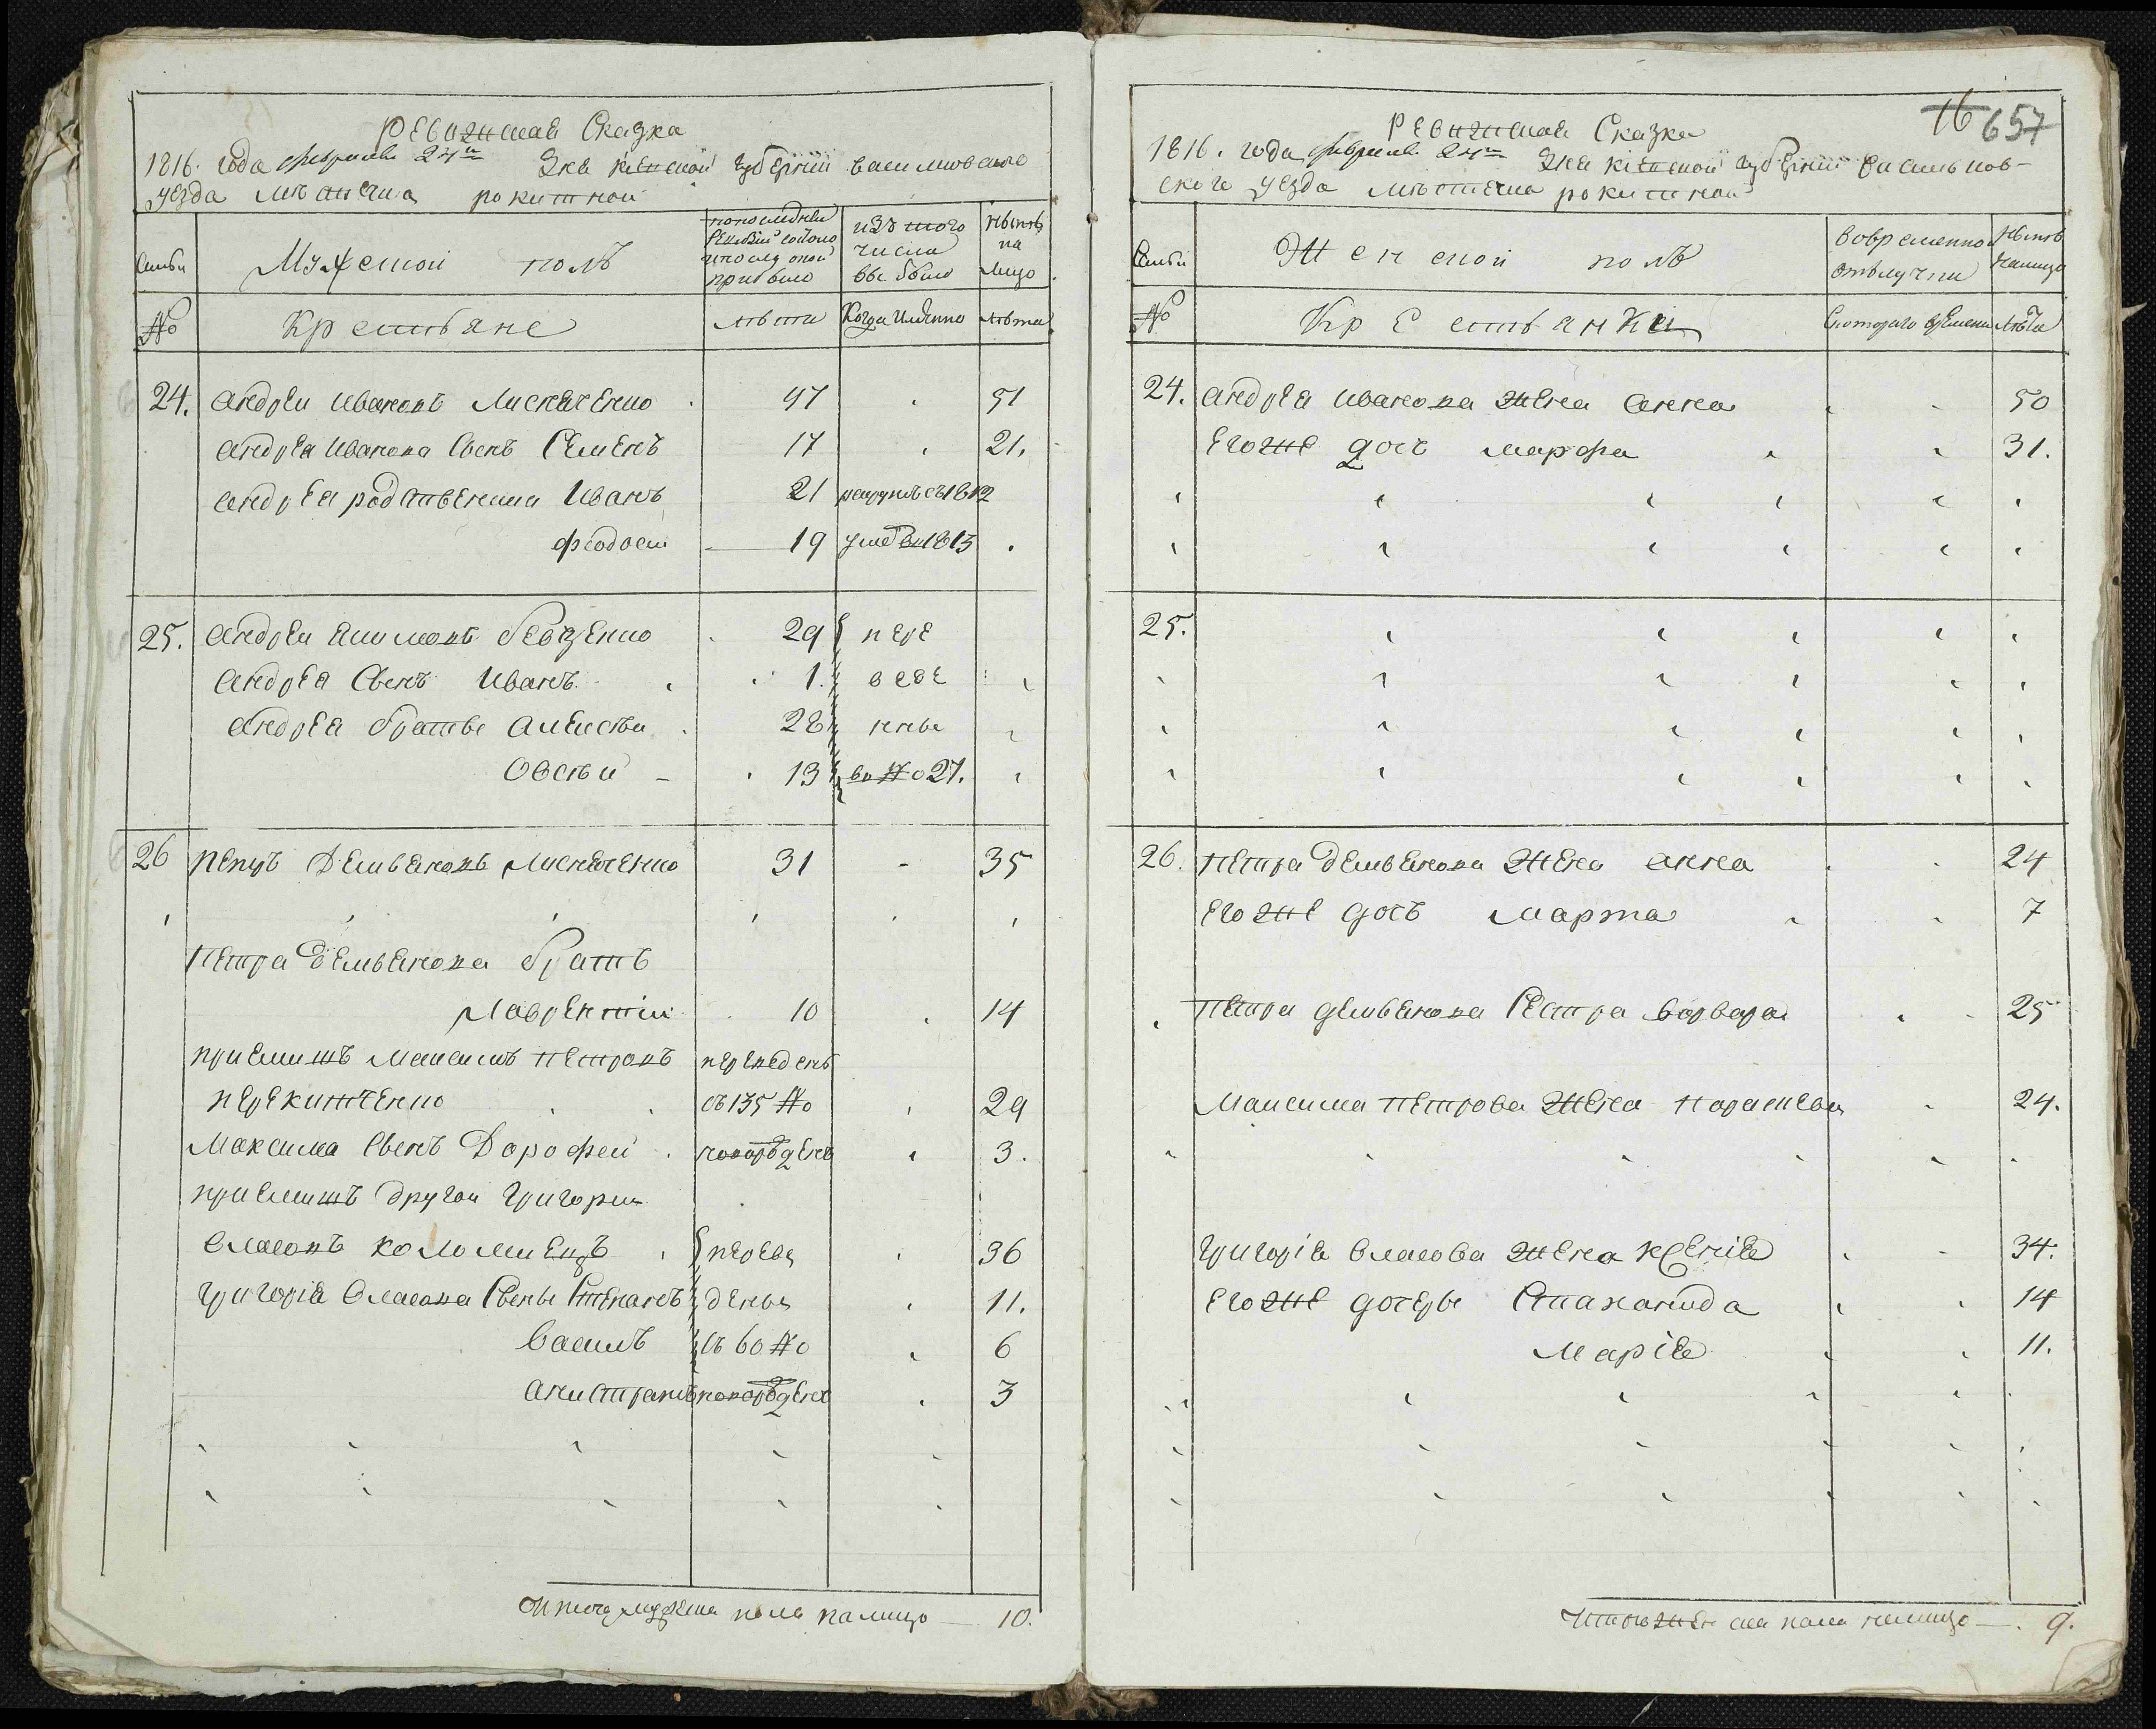 Ревизская Сказка
1816. года февраля 24го Дня Кіевской губерніи василковского
уезда мѣстечка рокитной
Семьи
Мужеской полъ
попоследней Ревизіи состояло и после оной прибыло
изъ того числа выбыло
Нынѣ на лицо
№
Крестьяне
лѣта
Когда имянно
лѣта
24. андреи ивановъ 47 51
андрея иванова сынъ Семенъ 17 21.
андрея родственики Иванъ 21 рекрутъ съ 1812
феодосіи 19 умре въ 1813
25. андреи Евзенко 29 пере
андрея сынъ иванъ 1. веде
андрея братье алексѣи 28 нные
Овсѣи 13 во № 27.
26 петръ демьяновъ 31 35
петра демьянова братъ
Лаврентіи 10 14
приемишъ максимъ петровъ переведенъ
съ 135 № 29
максима сынъ Дорофеи новорожденъ 3.
приемишъ другои григореи
власовъ коломиецъ переве 36
григорія власова сыны степанъ дены 11.
василъ съ 60 № 6
новорожденъ 3
Итого мужеска пола налицо 10.
16 657
Ревизская Сказка
1816. года февраля 24го Дня кіевской губерніи василков-
ского уезда мѣстечка рокитной
Семьи
Женской полъ
вовременной отлучки
Нынѣ налицо
№
Крестьянки
Скоторого времени
лѣта
24. андрея иванова жена анна 50
его же дочь марфа 31.
25.
26. петра демьянова жена анна 24
его же дочь марта 7
петра демьянова сестра варвара 25
максима петрова жена параскева 24.
григорія власова жена ксенія 34.
его же дочеры Стаханида 14
марія 11.
Итого женска пола налицо 9.